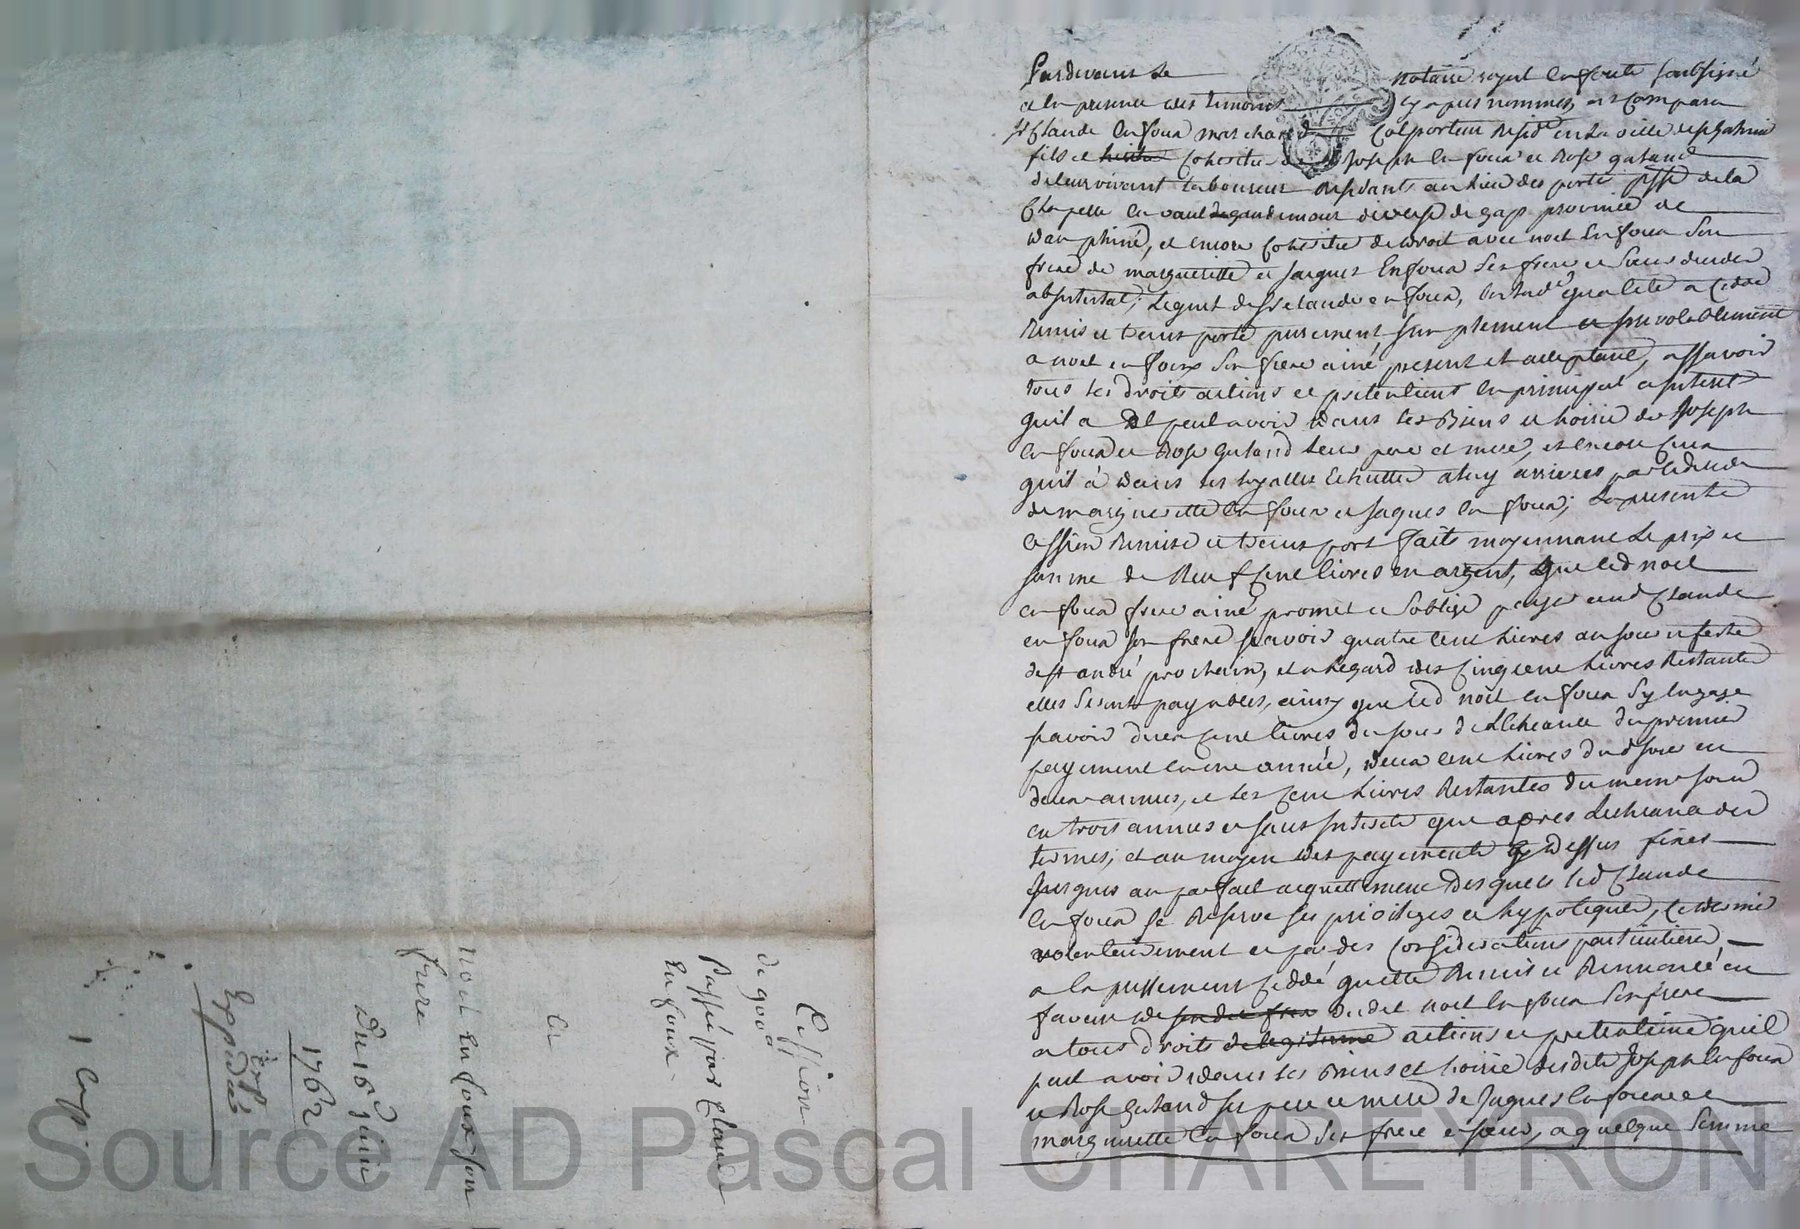 Pardevant Le notaire royal en foule soubsigné
a la presence des temoins cy apres nommes, est comparu
Sr Claude Enfoux marchand Colporteur Resid.t en la ville de
fils et Cohéritier de Joseph Enfoux et Rose gutand
de leur vivant laboureur Residants au lieu des portes psse de la
Chapelle en vaul degaudemar diocese de gap province de
dauphiné, et encore Coheritier de droit avec noel Enfoux son
frere de margueritte et Jacques Enfoux ses frere et soeur decedes
abintestat; Lequel dt Sr Claude enfoux, en lad.e qualité a Cedé
Remis et transporté purement, simplement et irrevocablement
a noel enfoux son frere ainé present et acceptant, assavoir
tous les droits actions et pretentions en principal et interets
qu'il a et peut avoir dans les Biens et hoirie de Joseph
Enfoux et Rose gutand leur pere et mere, et encore ceux
qu'il à dans les legalles Echuttes a luy arrivées par le deces
de margueritte Enfoux et Jaques Enfoux; La presente
Cession Remise et transport faits moyennant Le prix et
somme de Neuf Cent livres en argent, que led noel
enfoux frere ainé promet et s'oblige payer aud Claude
enfoux son frere scavoir quatre cent livres au jour et feste
de st andré prochain, et a l'egard des Cinq cent livres Restantes
elles seront payables, ainsy que led noel enfoux s'y engage
scavoir deux cent livres du jour de l'Echeance du premier
payement en une année, deux cent livres dud jour en
deux années, et les Cent livres Restantes du meme jour
en trois années et sans interets que apres l'echeance des
termes; et au moyen des payements cy dessus fixés
jusques au parfait acquittement desquels led Claude
Enfoux se Reserve ses privileges et hypoteques, ce dernier
volontairement et par des Considerations particulieres
a la pttement Ceddé quitté Remis et Renoncé en
faveur de son dit frere dudit noel Enfoux son frere
a tous droits de legitime actions et pretentions qu'il
peut avoir dans les Biens et hoirie desdits Joseph Enfoux
et Rose gutand ses pere et mere de Jaques Enfoux et
margueritte Enfoux ses frere et soeur, a quelque somme
Cession
de 900 #
Passée par Claude
Enfoux
a
noel Enfoux son
frere
Du 15 Juin
1762
Expediée
1 Cop.
Source AD Pascal CHAREYRON